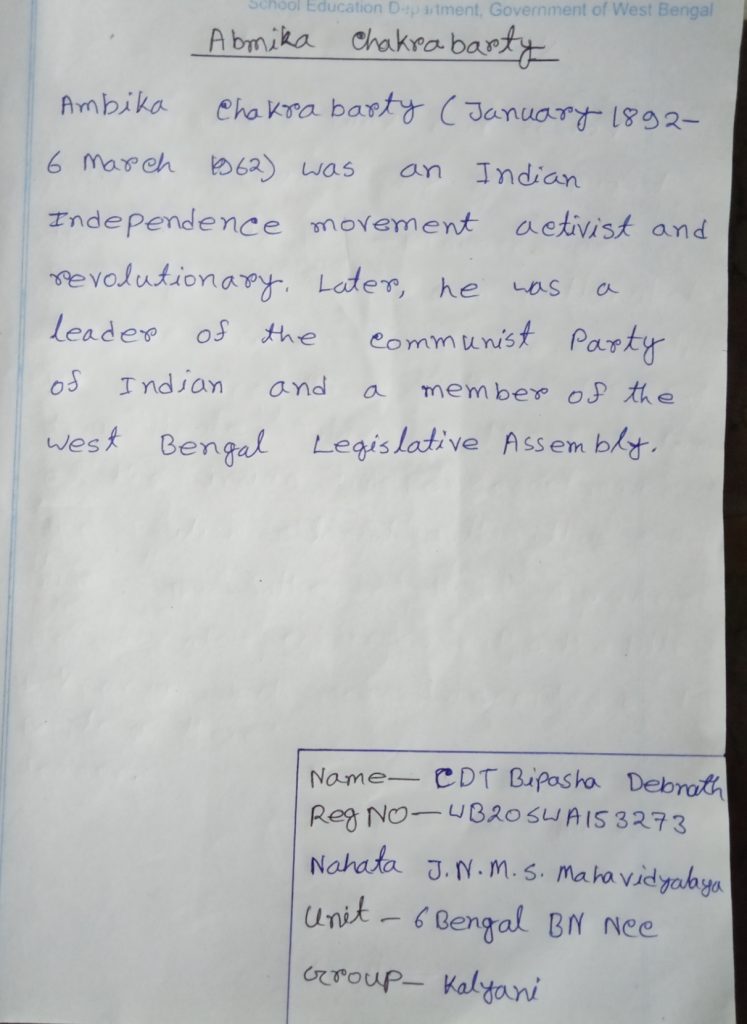 School Education Department, Government of West Bengal
Abmika Chakrabarty
Ambika Chakrabarty (January 1892-
6 March 1962) was an Indian
Independence movement activist and
revolutionary. Later, he was a
leader of the Communist Party
of Indian and a member of the
West Bengal Legislative Assembly.
Name— CDT Bipasha Debnath
Reg NO— WB20SWA153273
Nahata J.N.M.S. Mahavidyalaya
Unit - 6 Bengal BN NCC
Group- Kalyani